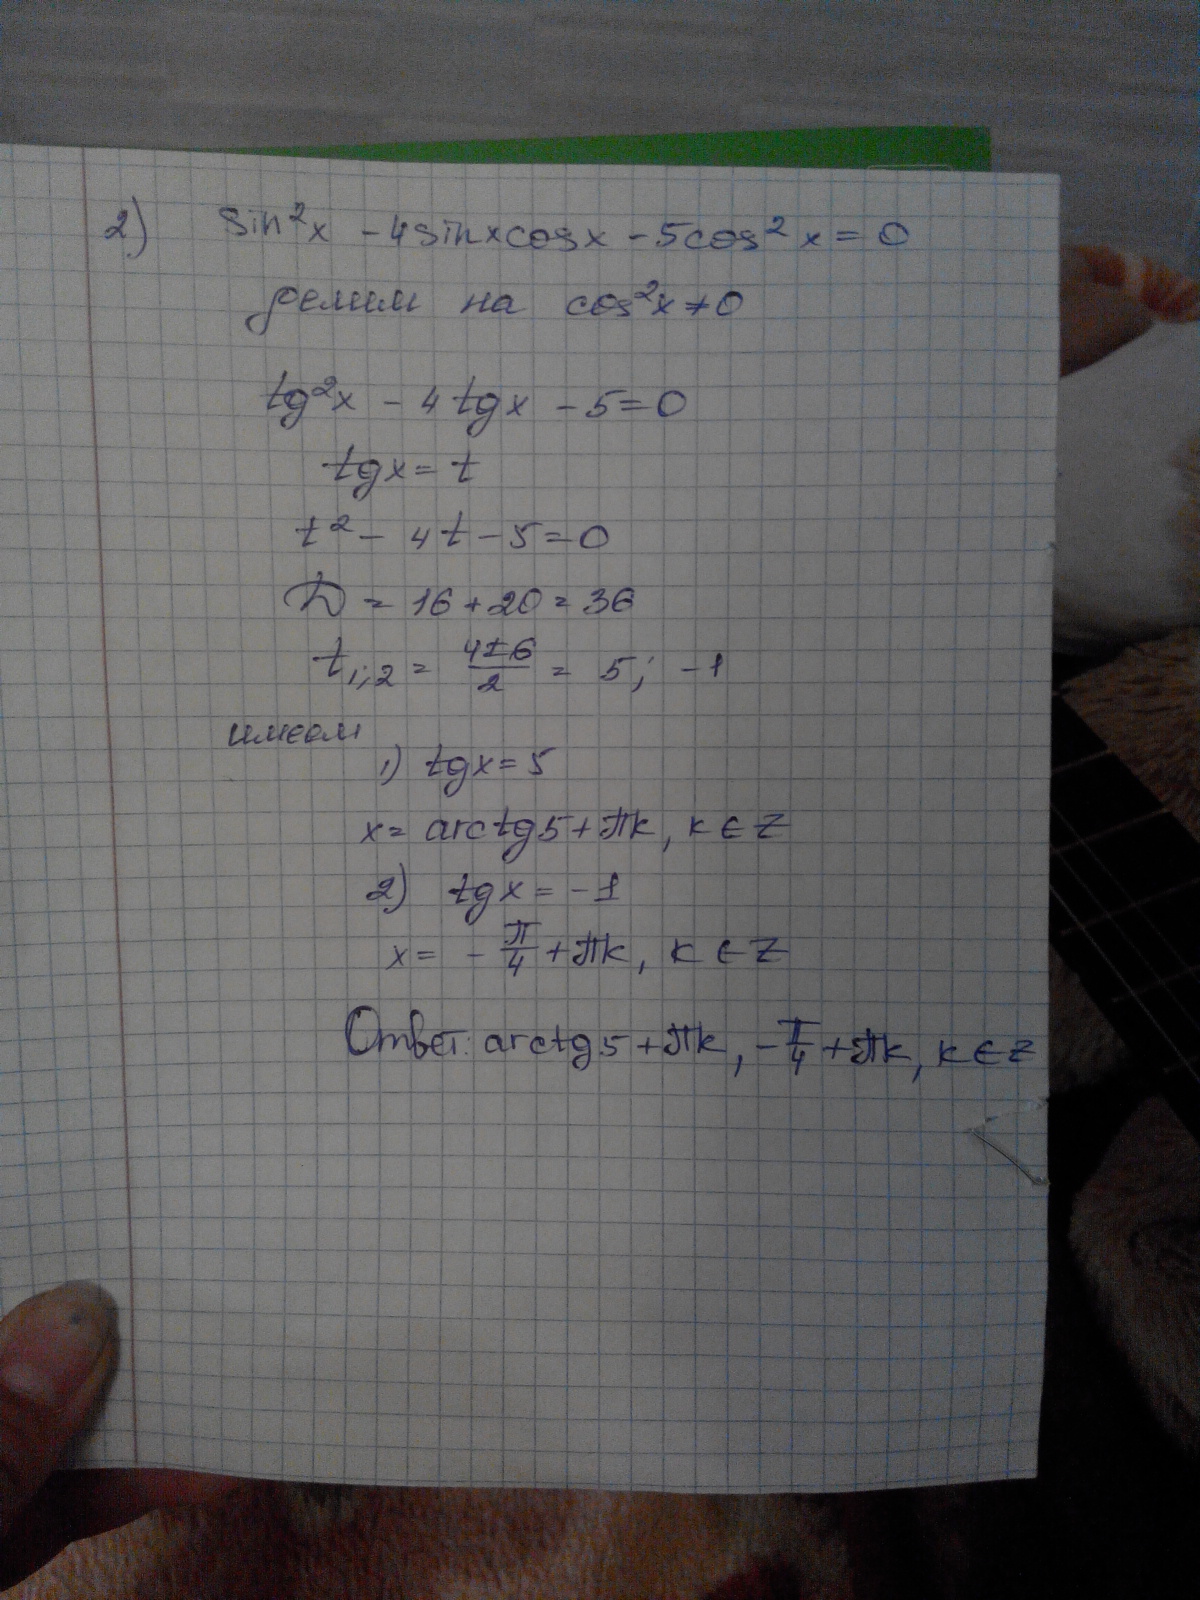 2) sin²x - 4sinxcosx - 5cos²x = 0
делим на cos²x ≠ 0
tg²x - 4 tgx - 5 = 0
tgx = t
t² - 4t - 5 = 0
D = 16 + 20 = 36
t₁;₂ = (4±6)/2 = 5; -1
имеем
1) tgx = 5
x = arctg5 + πk, k ∈ Z
2) tgx = -1
x = -π/4 + πk, k ∈ Z
Ответ: arctg5 + πk, -π/4 + πk, k ∈ Z